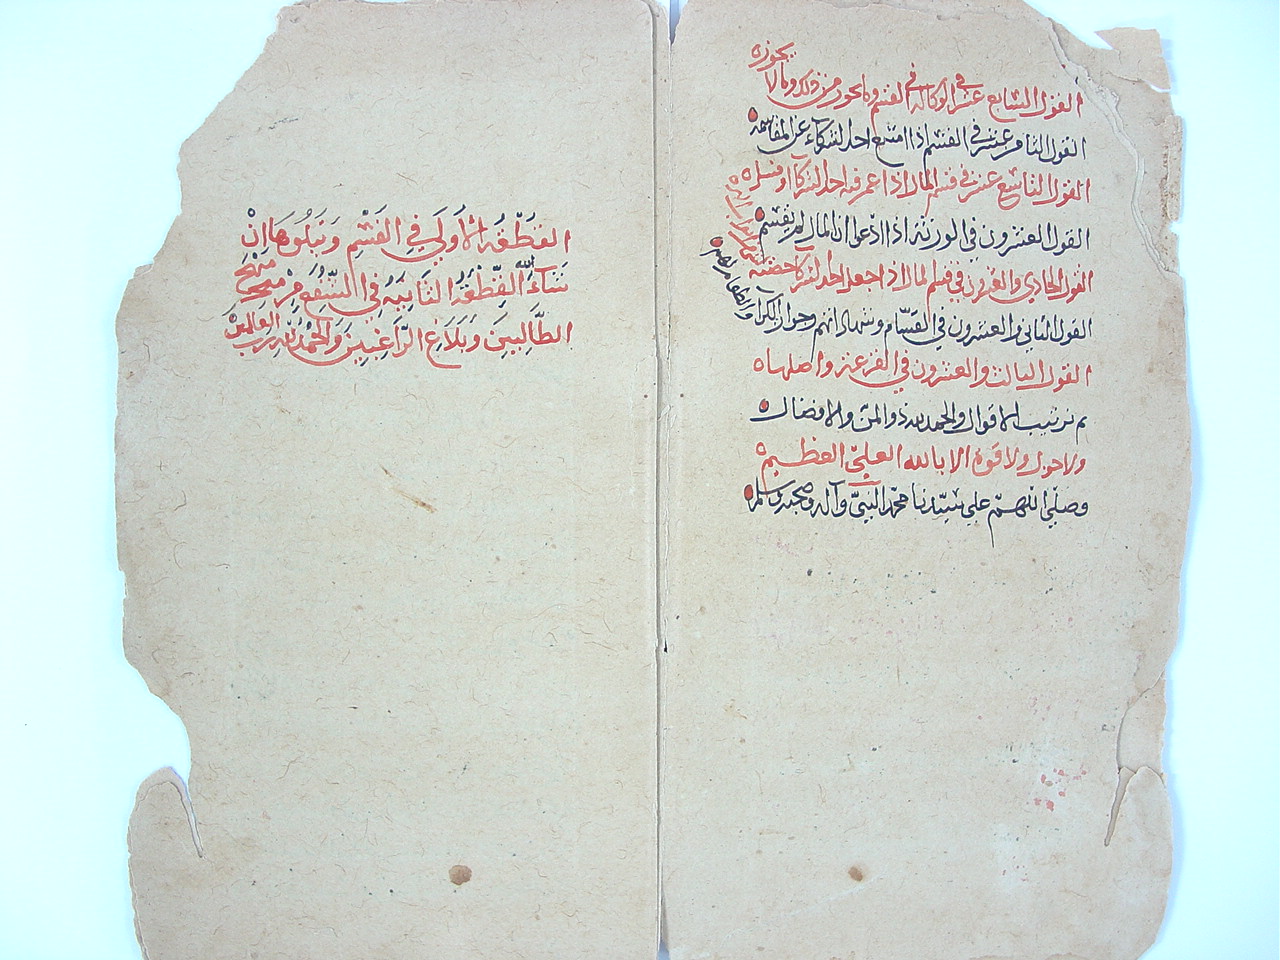 القول السابع عشر في الوكالة في القسم وما يجوز من ذلك وما لا
يجوزه
القول الثامن عشر في القسم اذا امتنع احد الشركاء عن المقاسمة
القول التاسع عشر في قسم المال اذا عمر فيه احد الشركآ او فسل ه
القول العشرون في الورثة اذا ادّعوا ان المال لم يقسم
القول الحادي والعشرون في قسم المال اذا جعل احد الشركآ حصته
القول الثاني والعشرون في القسّام وشهادانهم وجواز الكرا
القول الثالث والعشرون في القرعة واصلها ه
تم ترتيب الاقوال والحمد لله ذو المنّ والافضال
ولا حول ولا قوة الا بالله العليّ العظيم ه
وصلّي اللهمّ علي سيّدنا محمّد النبيّ وآله وصحبه وسلم
القِطْعَة الأولَي في القَسْمِ وَيَتلُوهَا اِنْ
شَآءَ اللّه القِطْعَةُ الثانِيَة فِي الشّفعِ مِنْ مَنْهَجِ
الطَّالِبِينَ وَبَلاغِ الرَّاغِبِينَ وَالحَمْدُ للّه رَبّ العالمين